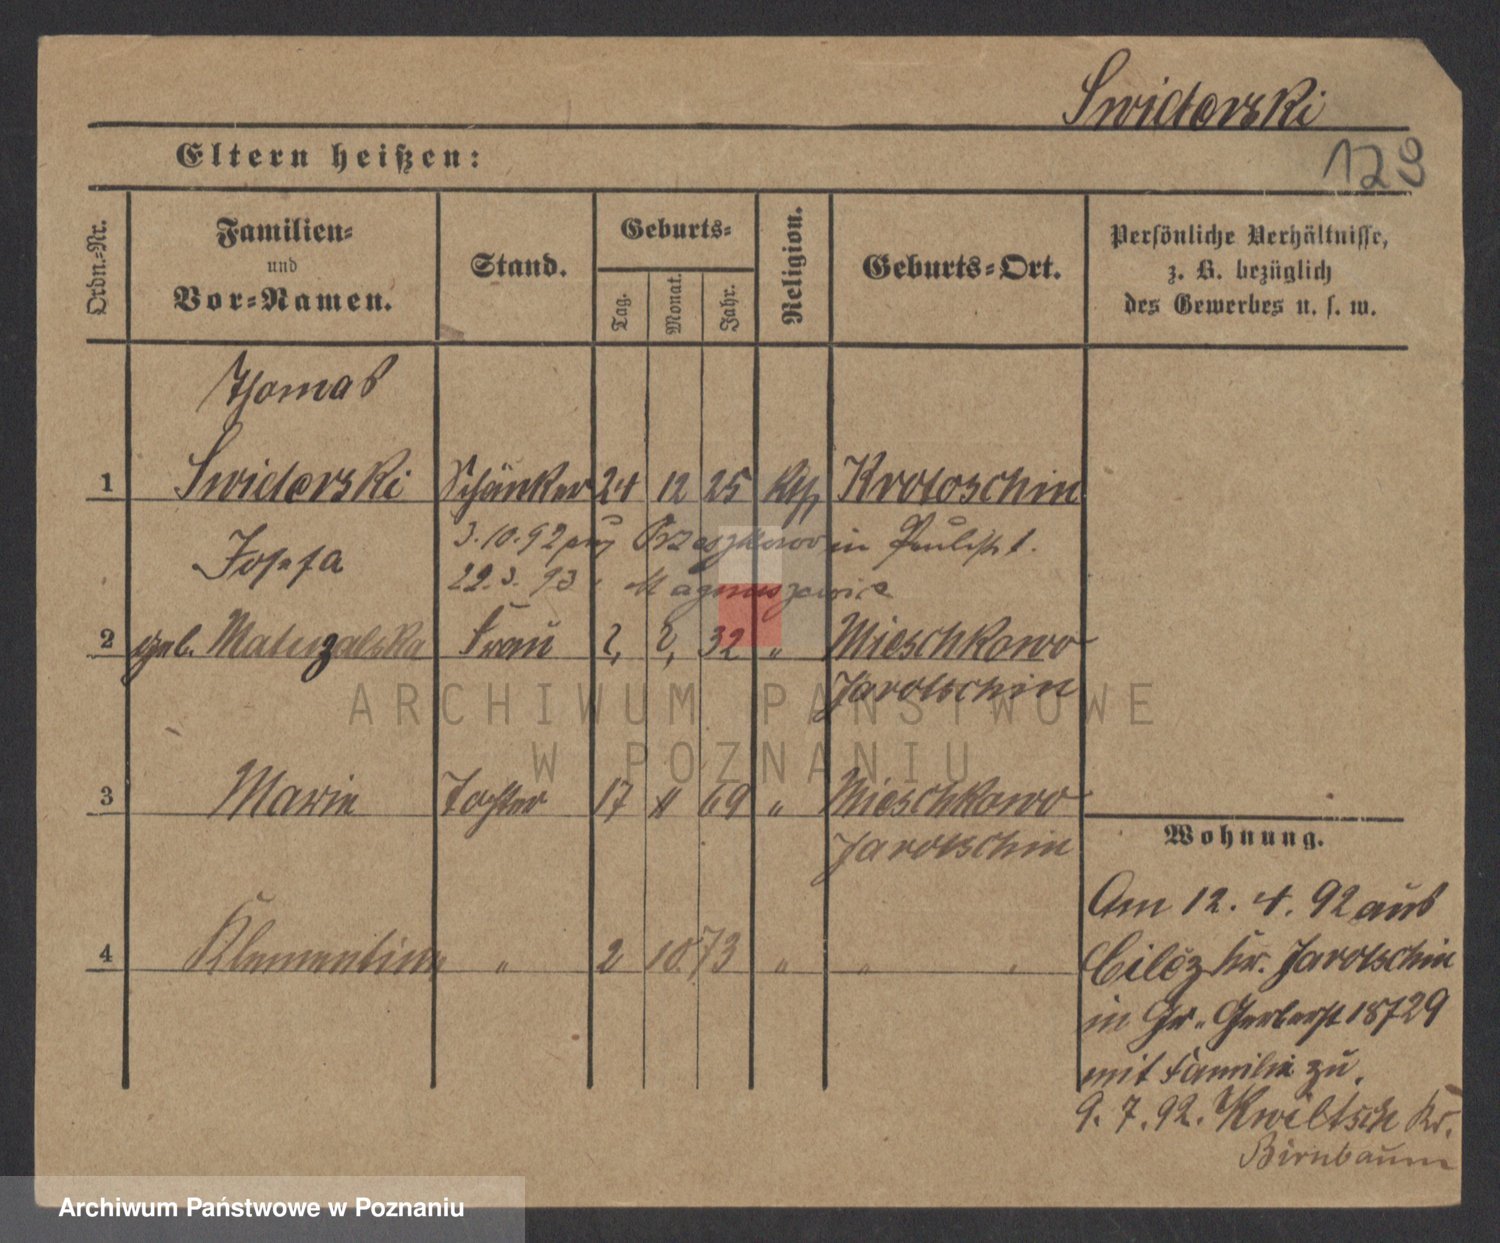 Swiderski
129
Eltern heißen:
Ordn.-Nr.
Familien-
und
Vor-Namen.
Stand.
Geburts-
Tag.
Monat.
Jahr.
Religion.
Geburts-Ort.
Persönliche Verhältnisse,
z. B. bezüglich
des Gewerbes u. s. w.
Thomas
1 Swiderski Schänker 24 12 25 Kth Krotoschin
3.10.92 in
Josefa
22.3.93 Magnuszewice
2 geb. Matuszalska Frau 2, 2, 32 " Mieschkowo
Jarotschin
3 Marie Tochter 17 11 69 " Mieschkowo
Jarotschin
4 Klementine " 2 10. 73 " " "
Wohnung.
Am 12. 4. 92 aus
Cilcz Kr. Jarotschin
in Gr. Gerberst 18729
mit Familie zu.
9. 7. 92. Kwiltsch Kr.
Birnbaum
ARCHIWUM PAŃSTWOWE
W POZNANIU
Archiwum Państwowe w Poznaniu